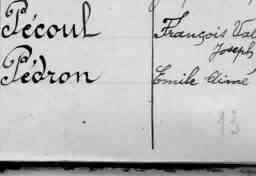 Pécoul François Val
Joseph
Pédron Emile Aimé